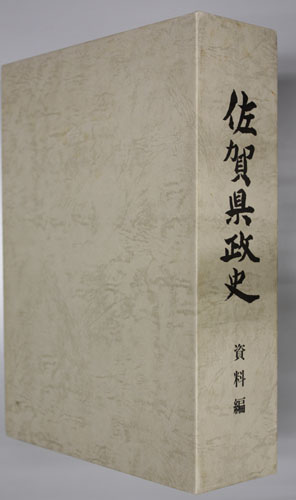 佐賀県政史
資料編